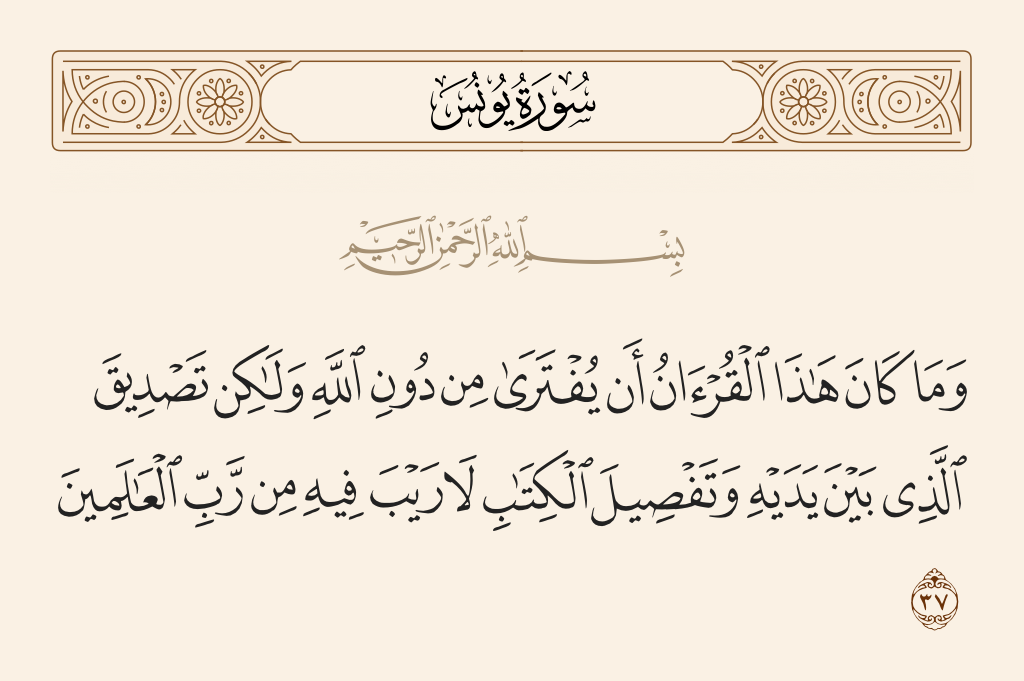 سُورَةُ يُونُسَ
بِسْمِ ٱللَّهِ ٱلرَّحْمَٰنِ ٱلرَّحِيمِ
وَمَا كَانَ هَٰذَا ٱلْقُرْءَانُ أَن يُفْتَرَىٰ مِن دُونِ ٱللَّهِ وَلَٰكِن تَصْدِيقَ
ٱلَّذِى بَيْنَ يَدَيْهِ وَتَفْصِيلَ ٱلْكِتَٰبِ لَا رَيْبَ فِيهِ مِن رَّبِّ ٱلْعَٰلَمِينَ
٣٧